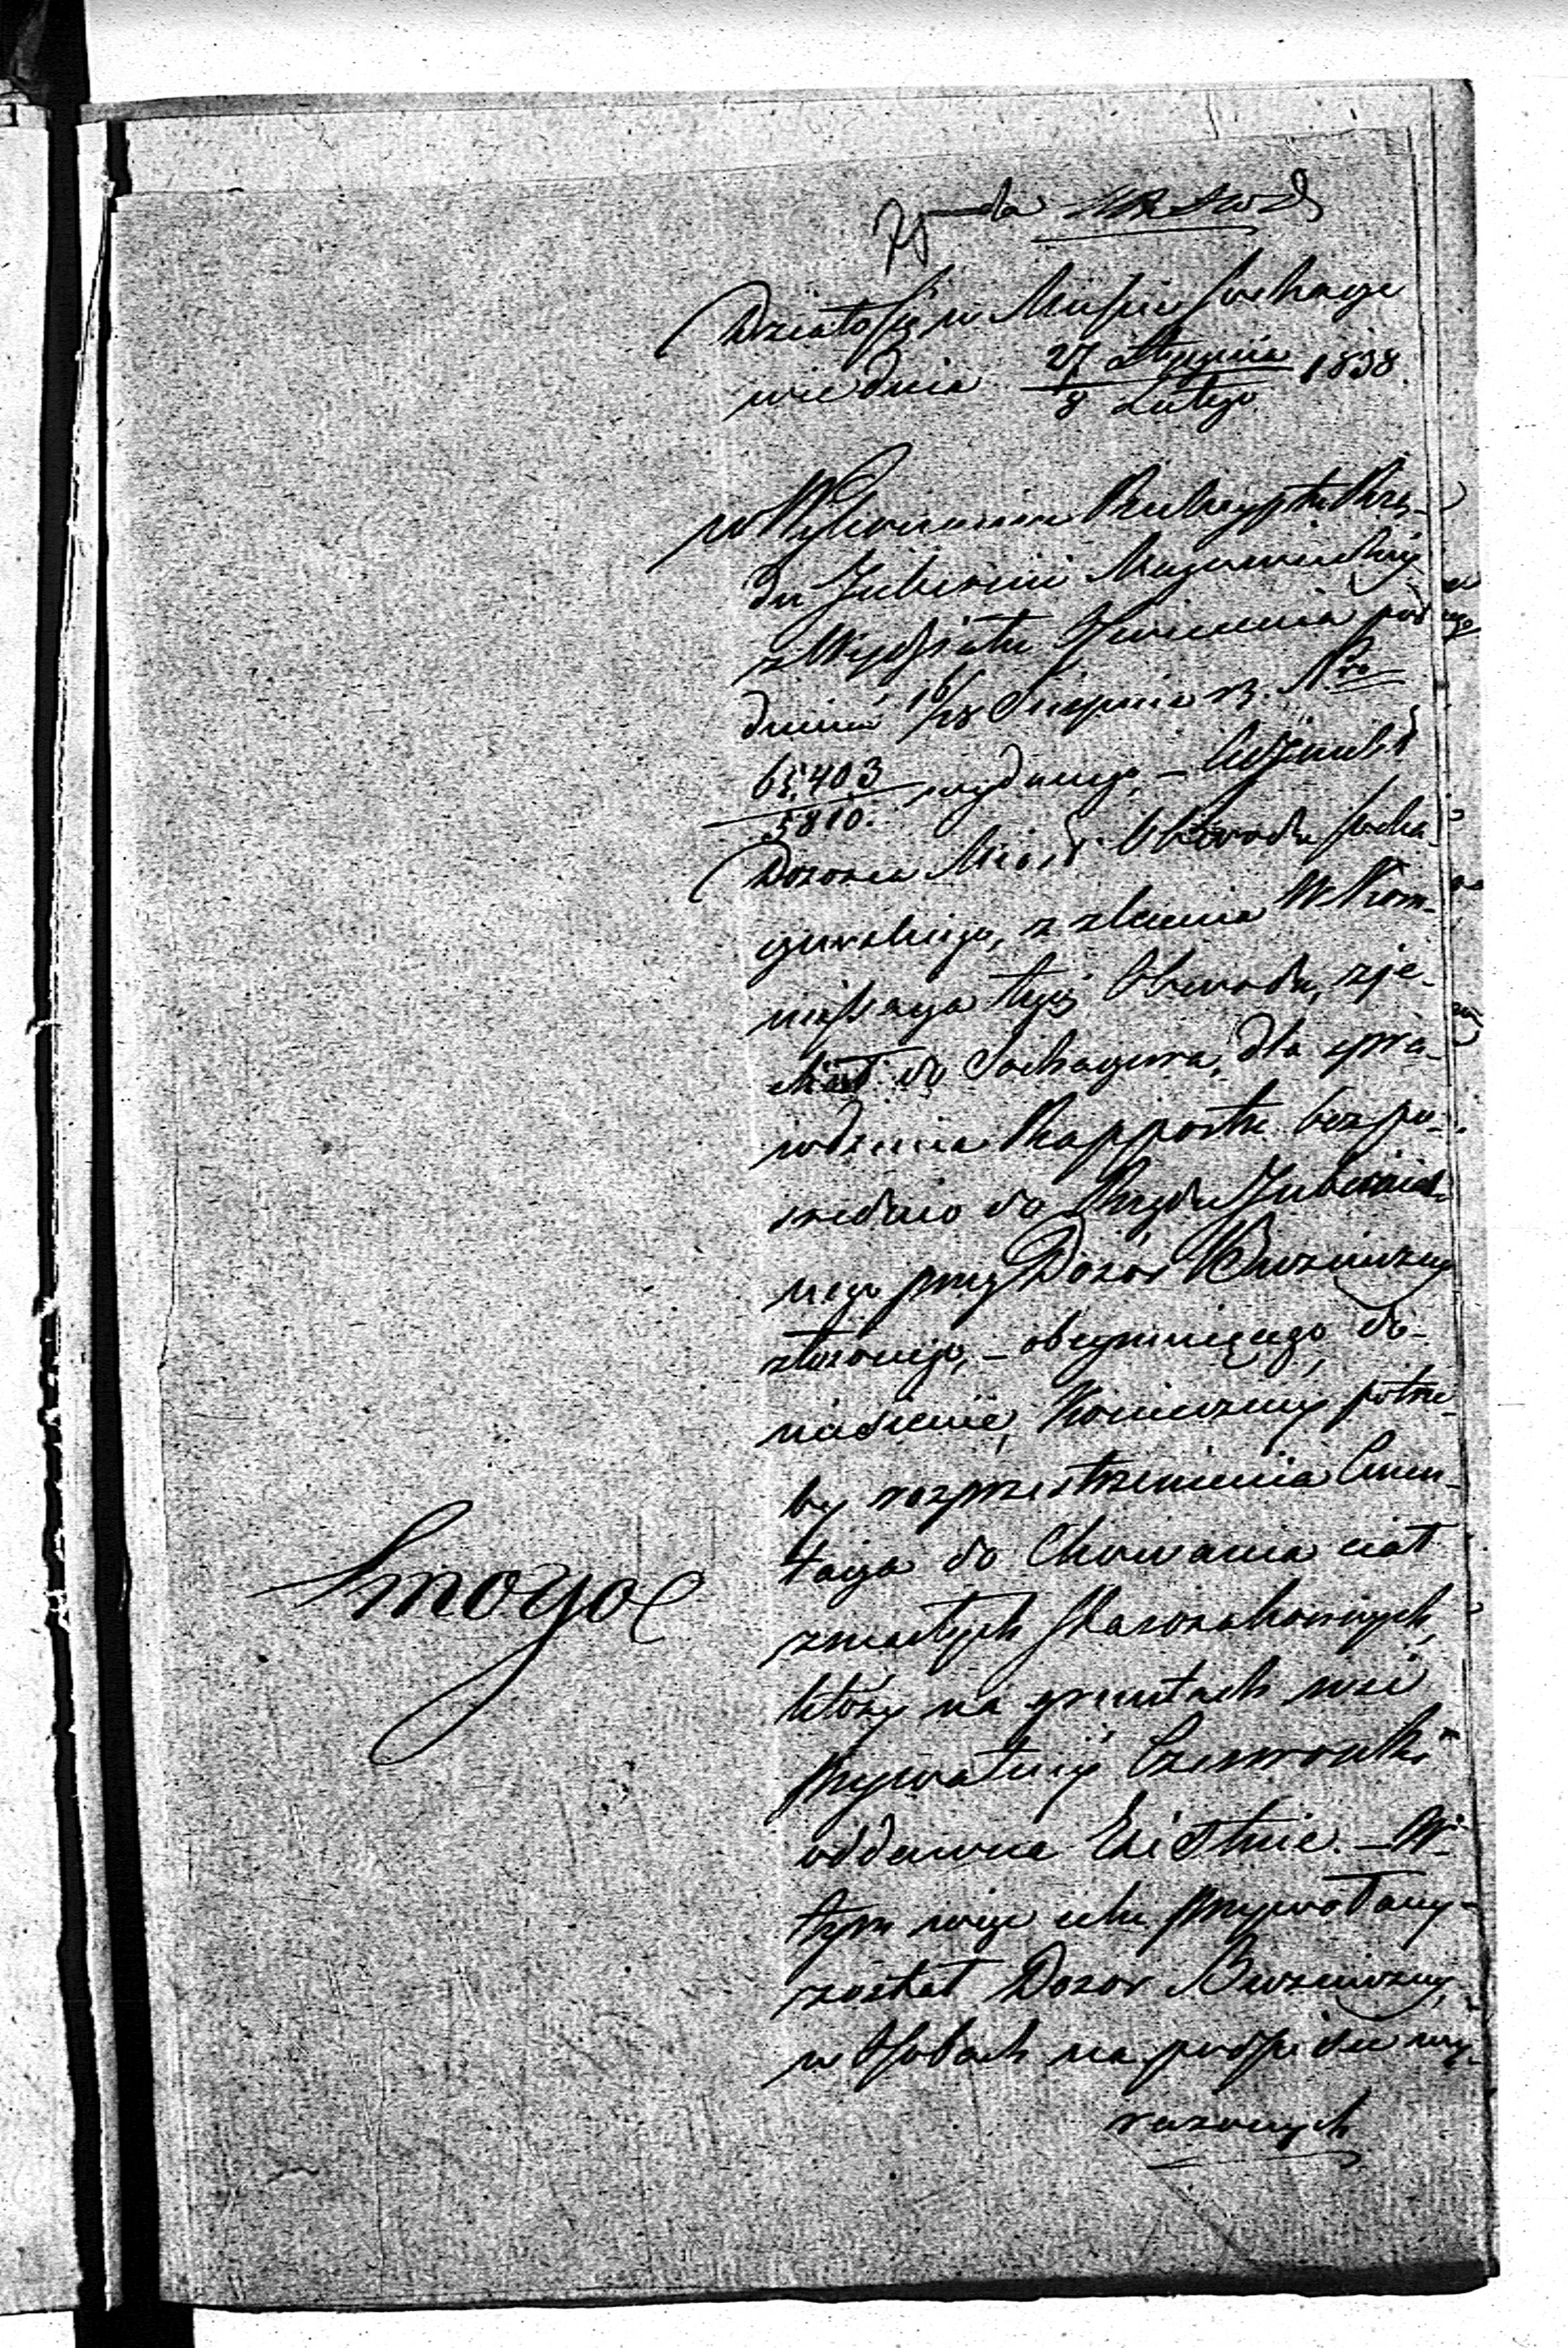 Działo się w Mieście Sochacze
wie dnia 27 Stycznia / 8 Lutego 1838.
w Wykonaniu Reskryptu Rzą-
du Gubernii Mazowieckiej
z Wydziału Skarbu pod
dniem 16/28 Sierpnia r. z. Nro
65,403 / 5810. wydanego, – Adjunkt
Dozorca Miast Obwodu Socha
czewskiego, z zlecenia W Kom-
missarza tegoż Obwodu, zje-
chał do Sochaczewa, dla spra-
wdzenia Rapportu bezpo-
srednio do Rządu Gubernial-
nego przez Dozór Bożniczny
złożonego, – obejmującego do-
niesienie, Konieczney potrze-
by rozprzestrzenienia Cmen-
tarza do Chowania ciał
zmarłych Starozakonnych,
który na gruntach wsi
prywatnéj Czerwonki
oddawna Existuie. – W
tym więc celu przywołany
został Dozór Bożniczny,
w Osobach na podpisie wy-
rażonych